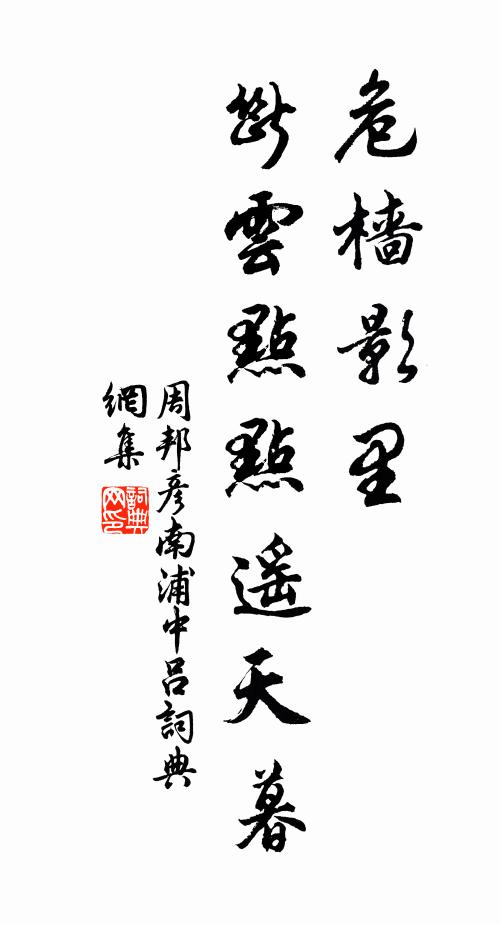 危檣影里
斷雲點點遥天暮
周邦彦南浦中呂詞典
網集
詞典
网印